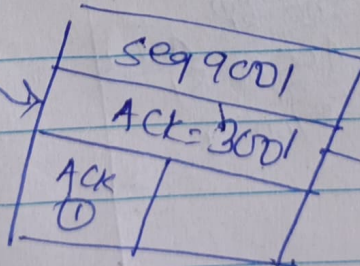 seq 9001
ACK = 3001
ACK
①